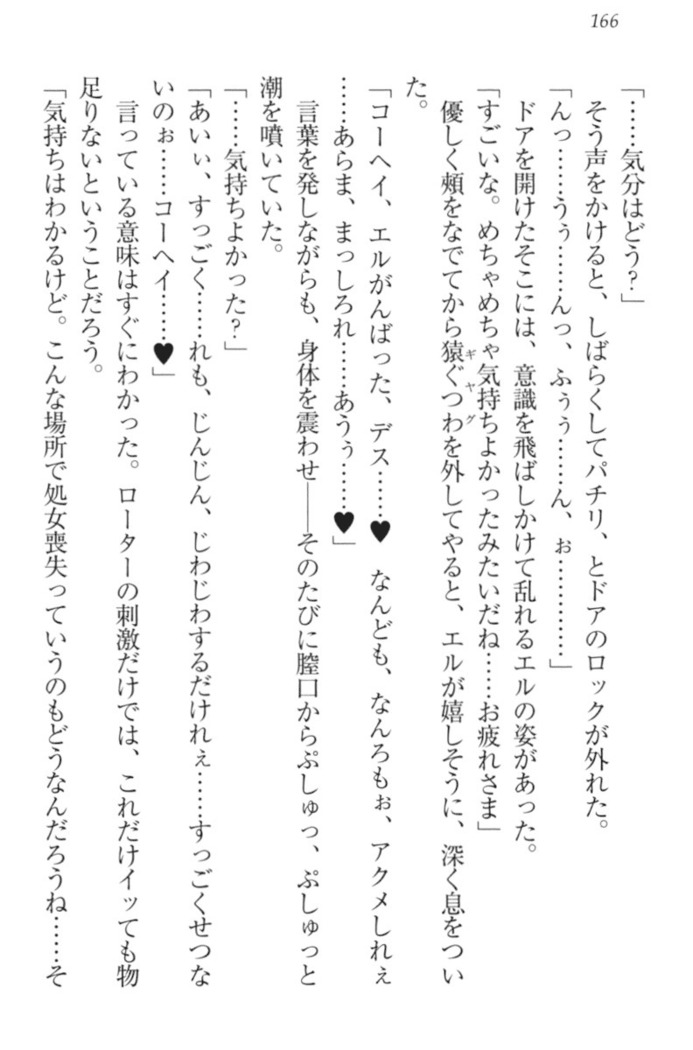 166
「……気分はどう?」
そう声をかけると、しばらくしてパチリ、とドアのロックが外れた。
「んっ……うぅ……んっ、ふぅぅ……ん、ぉ…………」
ドアを開けたそこには、意識を飛ばしかけて乱れるエルの姿があった。
「すごいな。めちゃめちゃ気持ちよかったみたいだね……お疲れさま」
優しく頬をなでてから猿ぐつわを外してやると、エルが嬉しそうに、深く息をつい
ギャグ
た。
「コーヘイ、エルがんばった、デス……♥　なんども、なんろもぉ、アクメしれぇ
……あらま、まっしろれ……あうぅ……♥」
言葉を発しながらも、身体を震わせ――そのたびに膣口からぷしゅっ、ぷしゅっと
潮を噴いていた。
「……気持ちよかった?」
「あいぃ、すっごく……れも、じんじん、じわじわするだけれぇ……すっごくせつな
いのぉ……コーヘイ……♥」
言っている意味はすぐにわかった。ローターの刺激だけでは、これだけイッても物
足りないということだろう。
「気持ちはわかるけど。こんな場所で処女喪失っていうのもどうなんだろうね……そ